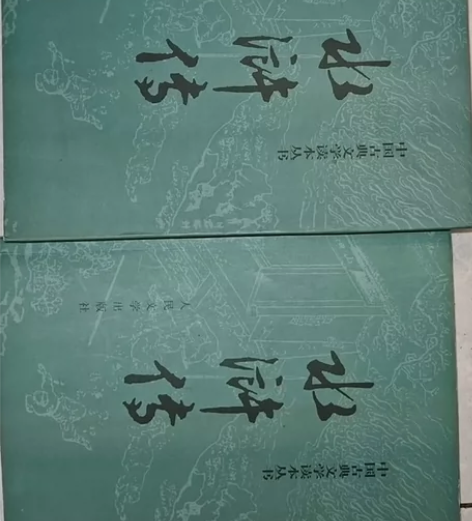 中国古典文学读本丛书
水浒传
中国古典文学读本丛书
水浒传
人民文学出版社